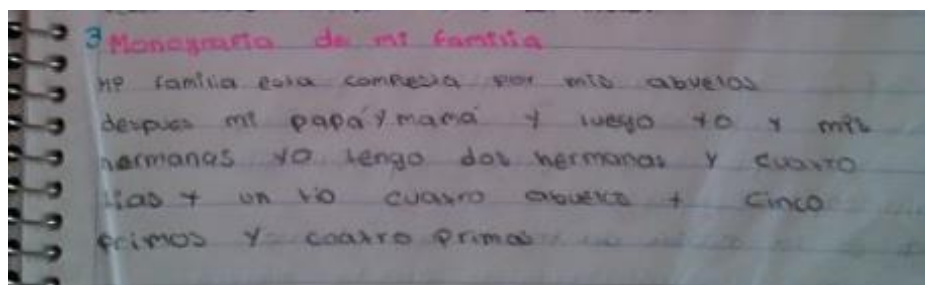 3 Monografia de mi familia
Mi familia esta compuesta por mis abuelos
despues mi papá y mamá y luego yo y mis
hermanas yo tengo dos hermanas y cuatro
tias y un tio cuatro abuelos y cinco
primos y coatro primas